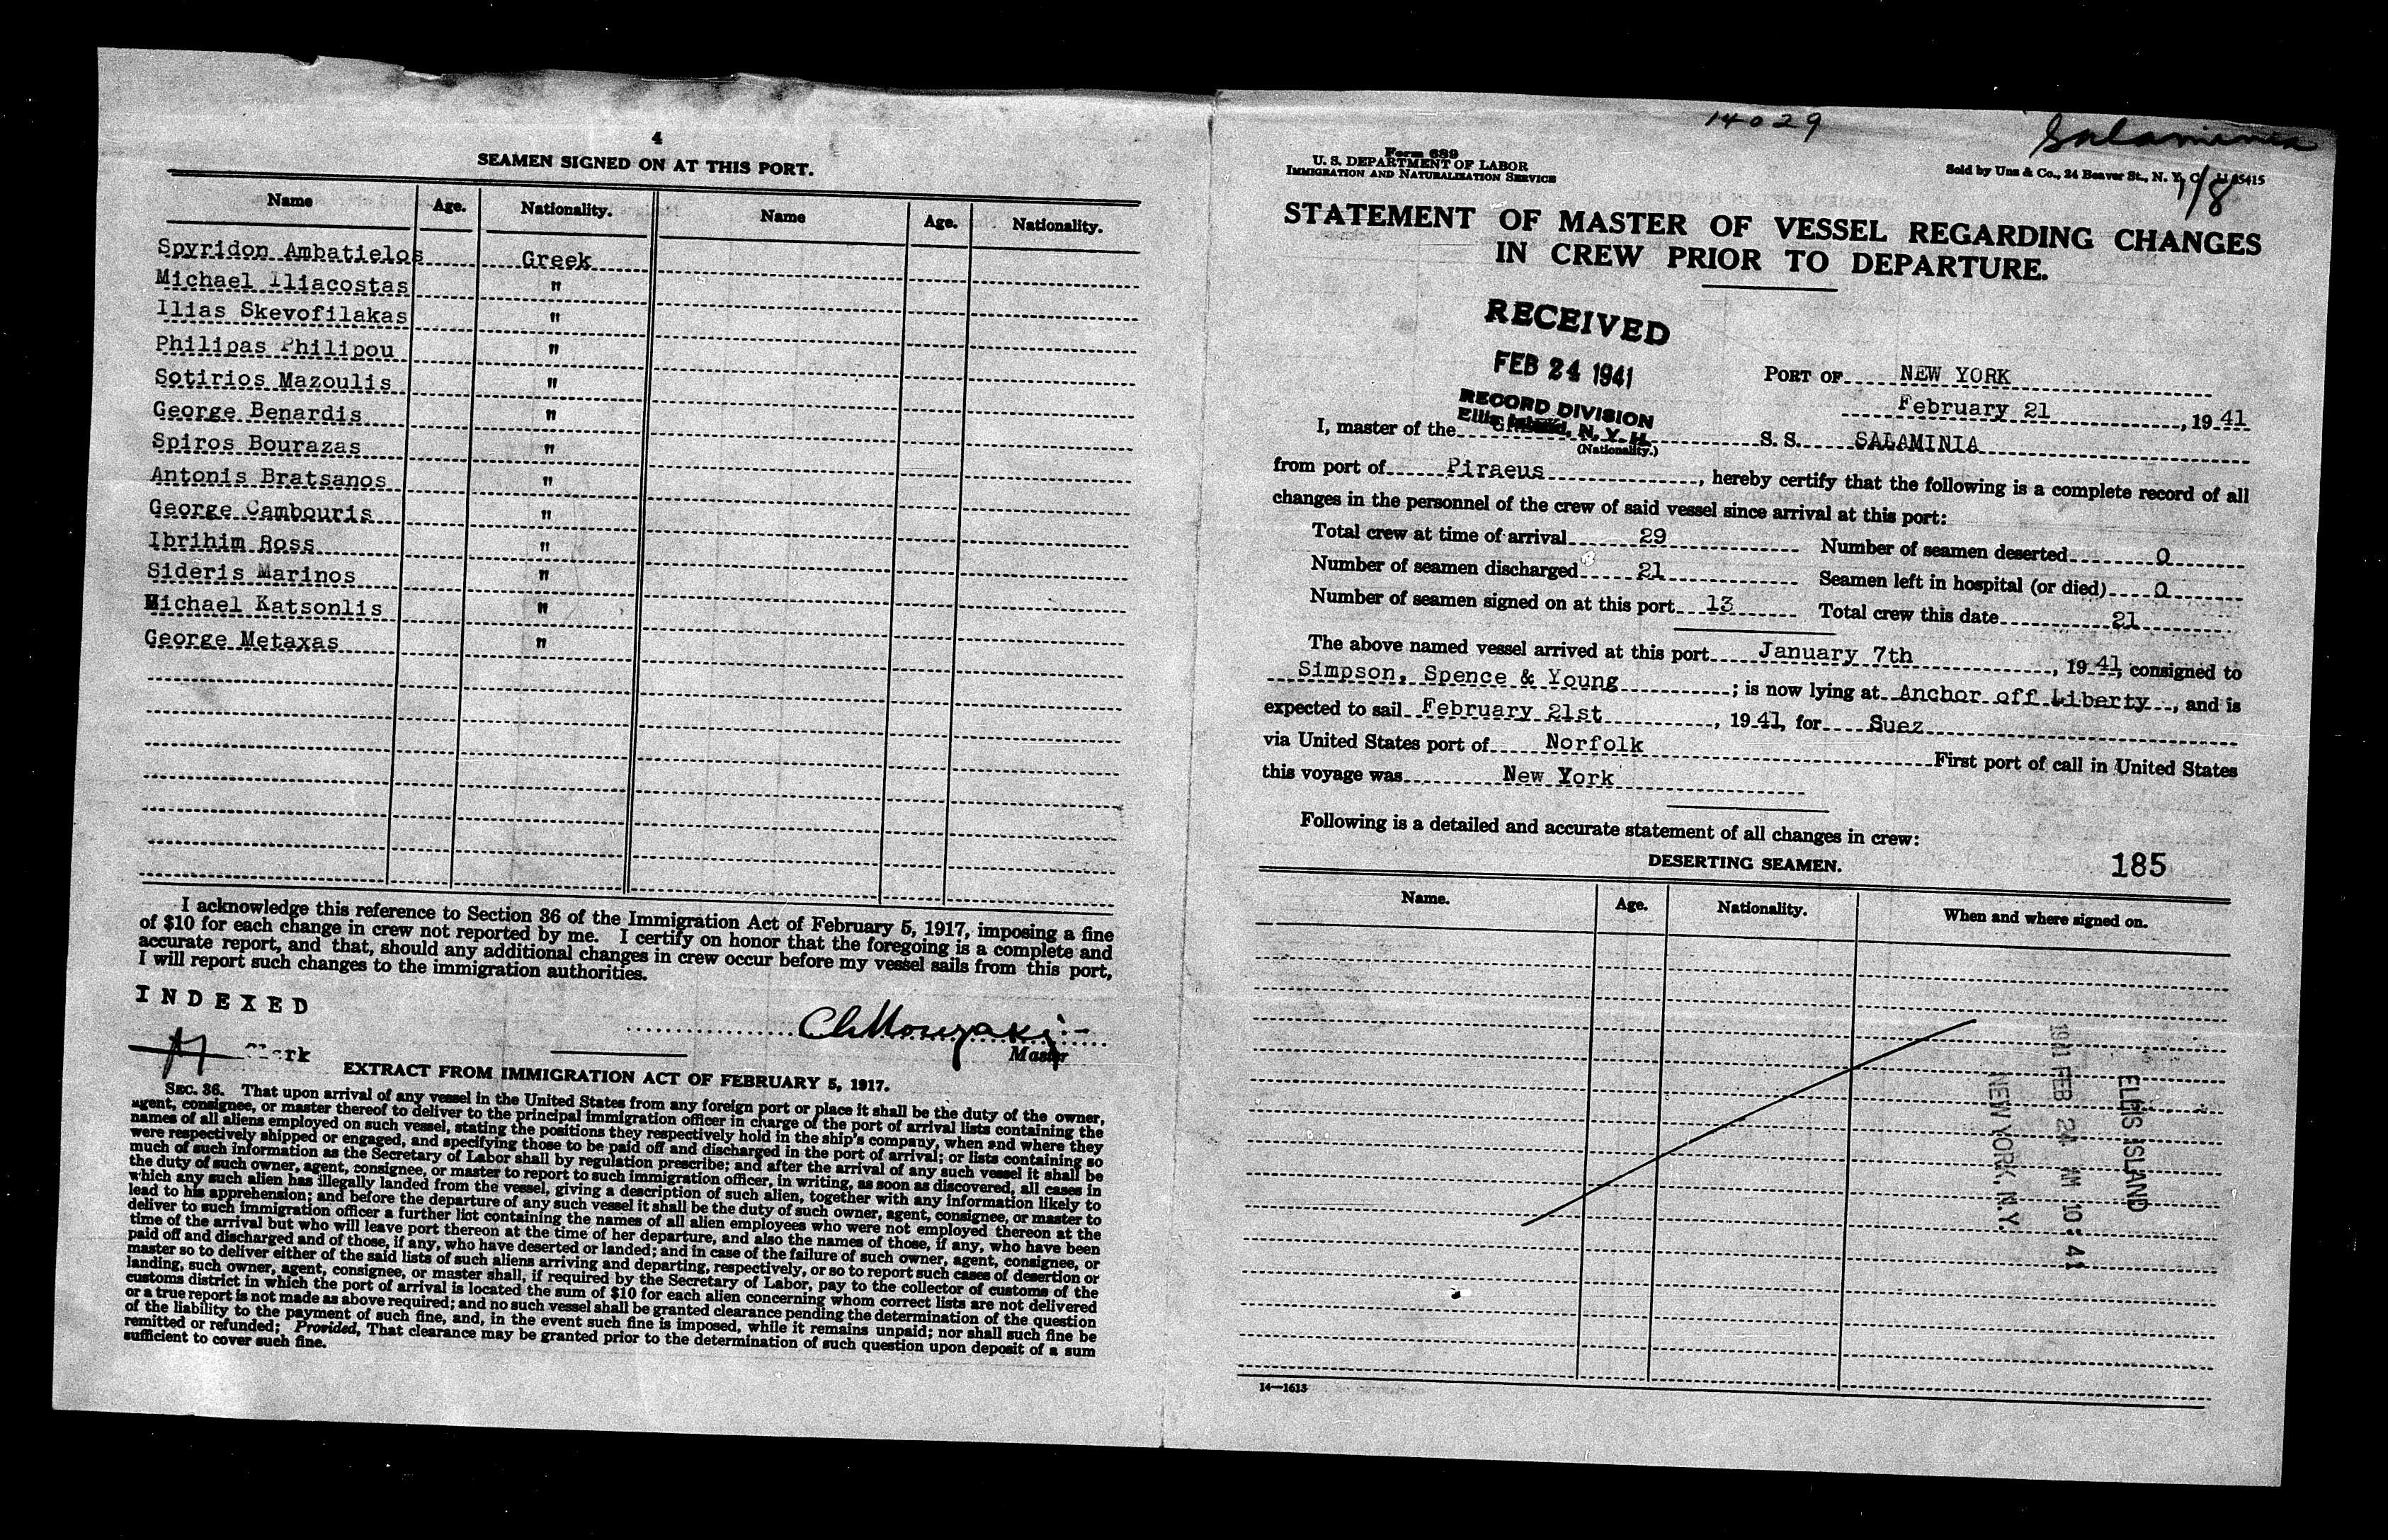 4
SEAMEN SIGNED ON AT THIS PORT.
Name Age. Nationality. Name Age. Nationality.
Spyridon Ambatielos Greek
Michael Iliacostas "
Ilias Skevofilakas "
Philipas Philipou "
Sotirios Mazoulis "
George Benardis "
Spiros Bourazas "
Antonis Bratsanos "
George Cambouris "
Ibrihim Ross "
Sideris Marinos "
Michael Katsonlis "
George Metaxas "
I acknowledge this reference to Section 36 of the Immigration Act of February 5, 1917, imposing a fine
of $10 for each change in crew not reported by me. I certify on honor that the foregoing is a complete and
accurate report, and that, should any additional changes in crew occur before my vessel sails from this port,
I will report such changes to the immigration authorities.
INDEXED
Clerk
Master
EXTRACT FROM IMMIGRATION ACT OF FEBRUARY 5, 1917.
SEC. 36. That upon arrival of any vessel in the United States from any foreign port or place it shall be the duty of the owner,
agent, consignee, or master thereof to deliver to the principal immigration officer in charge of the port of arrival lists containing the
names of all aliens employed on such vessel, stating the positions they respectively hold in the ship's company, when and where they
were respectively shipped or engaged, and specifying those to be paid off and discharged in the port of arrival; or lists containing so
much of such information as the Secretary of Labor shall by regulation prescribe; and after the arrival of any such vessel it shall be
the duty of such owner, agent, consignee, or master to report to such immigration officer, in writing, as soon as discovered, all cases in
which any such alien has illegally landed from the vessel, giving a description of such alien, together with any information likely to
lead to his apprehension; and before the departure of any such vessel it shall be the duty of such owner, agent, consignee, or master to
deliver to such immigration officer a further list containing the names of all alien employees who were not employed thereon at the
time of the arrival but who will leave port thereon at the time of her departure, and also the names of those, if any, who have been
paid off and discharged and of those, if any, who have deserted or landed; and in case of the failure of such owner, agent, consignee, or
master so to deliver either of the said lists of such aliens arriving and departing, respectively, or so to report such cases of desertion or
landing, such owner, agent, consignee, or master shall, if required by the Secretary of Labor, pay to the collector of customs of the
customs district in which the port of arrival is located the sum of $10 for each alien concerning whom correct lists are not delivered
or a true report is not made as above required; and no such vessel shall be granted clearance pending the determination of the question
of the liability to the payment of such fine, and, in the event such fine is imposed, while it remains unpaid; nor shall such fine be
remitted or refunded; Provided, That clearance may be granted prior to the determination of such question upon deposit of a sum
sufficient to cover such fine.
14029
Salaminia
1/8
Form 689
U. S. DEPARTMENT OF LABOR
IMMIGRATION AND NATURALIZATION SERVICE
Sold by Unz & Co., 24 Beaver St., N. Y. C.
STATEMENT OF MASTER OF VESSEL REGARDING CHANGES
IN CREW PRIOR TO DEPARTURE.
RECEIVED
FEB 24 1941
RECORD DIVISION
Ellis Island, N. Y. H.
PORT OF NEW YORK
February 21, 1941
I, master of the S. S. SALAMINIA
(Nationality.)
from port of Piraeus, hereby certify that the following is a complete record of all
changes in the personnel of the crew of said vessel since arrival at this port:
Total crew at time of arrival 29 Number of seamen deserted 0
Number of seamen discharged 21 Seamen left in hospital (or died) 0
Number of seamen signed on at this port 13 Total crew this date 21
The above named vessel arrived at this port January 7th, 1941, consigned to
Simpson, Spence & Young; is now lying at Anchor off Liberty, and is
expected to sail February 21st, 1941, for Suez
via United States port of Norfolk First port of call in United States
this voyage was New York
Following is a detailed and accurate statement of all changes in crew:
DESERTING SEAMEN.
185
Name. Age. Nationality. When and where signed on.
ELLIS ISLAND
1941 FEB 24 AM 10:41
NEW YORK, N.Y.
14—1613